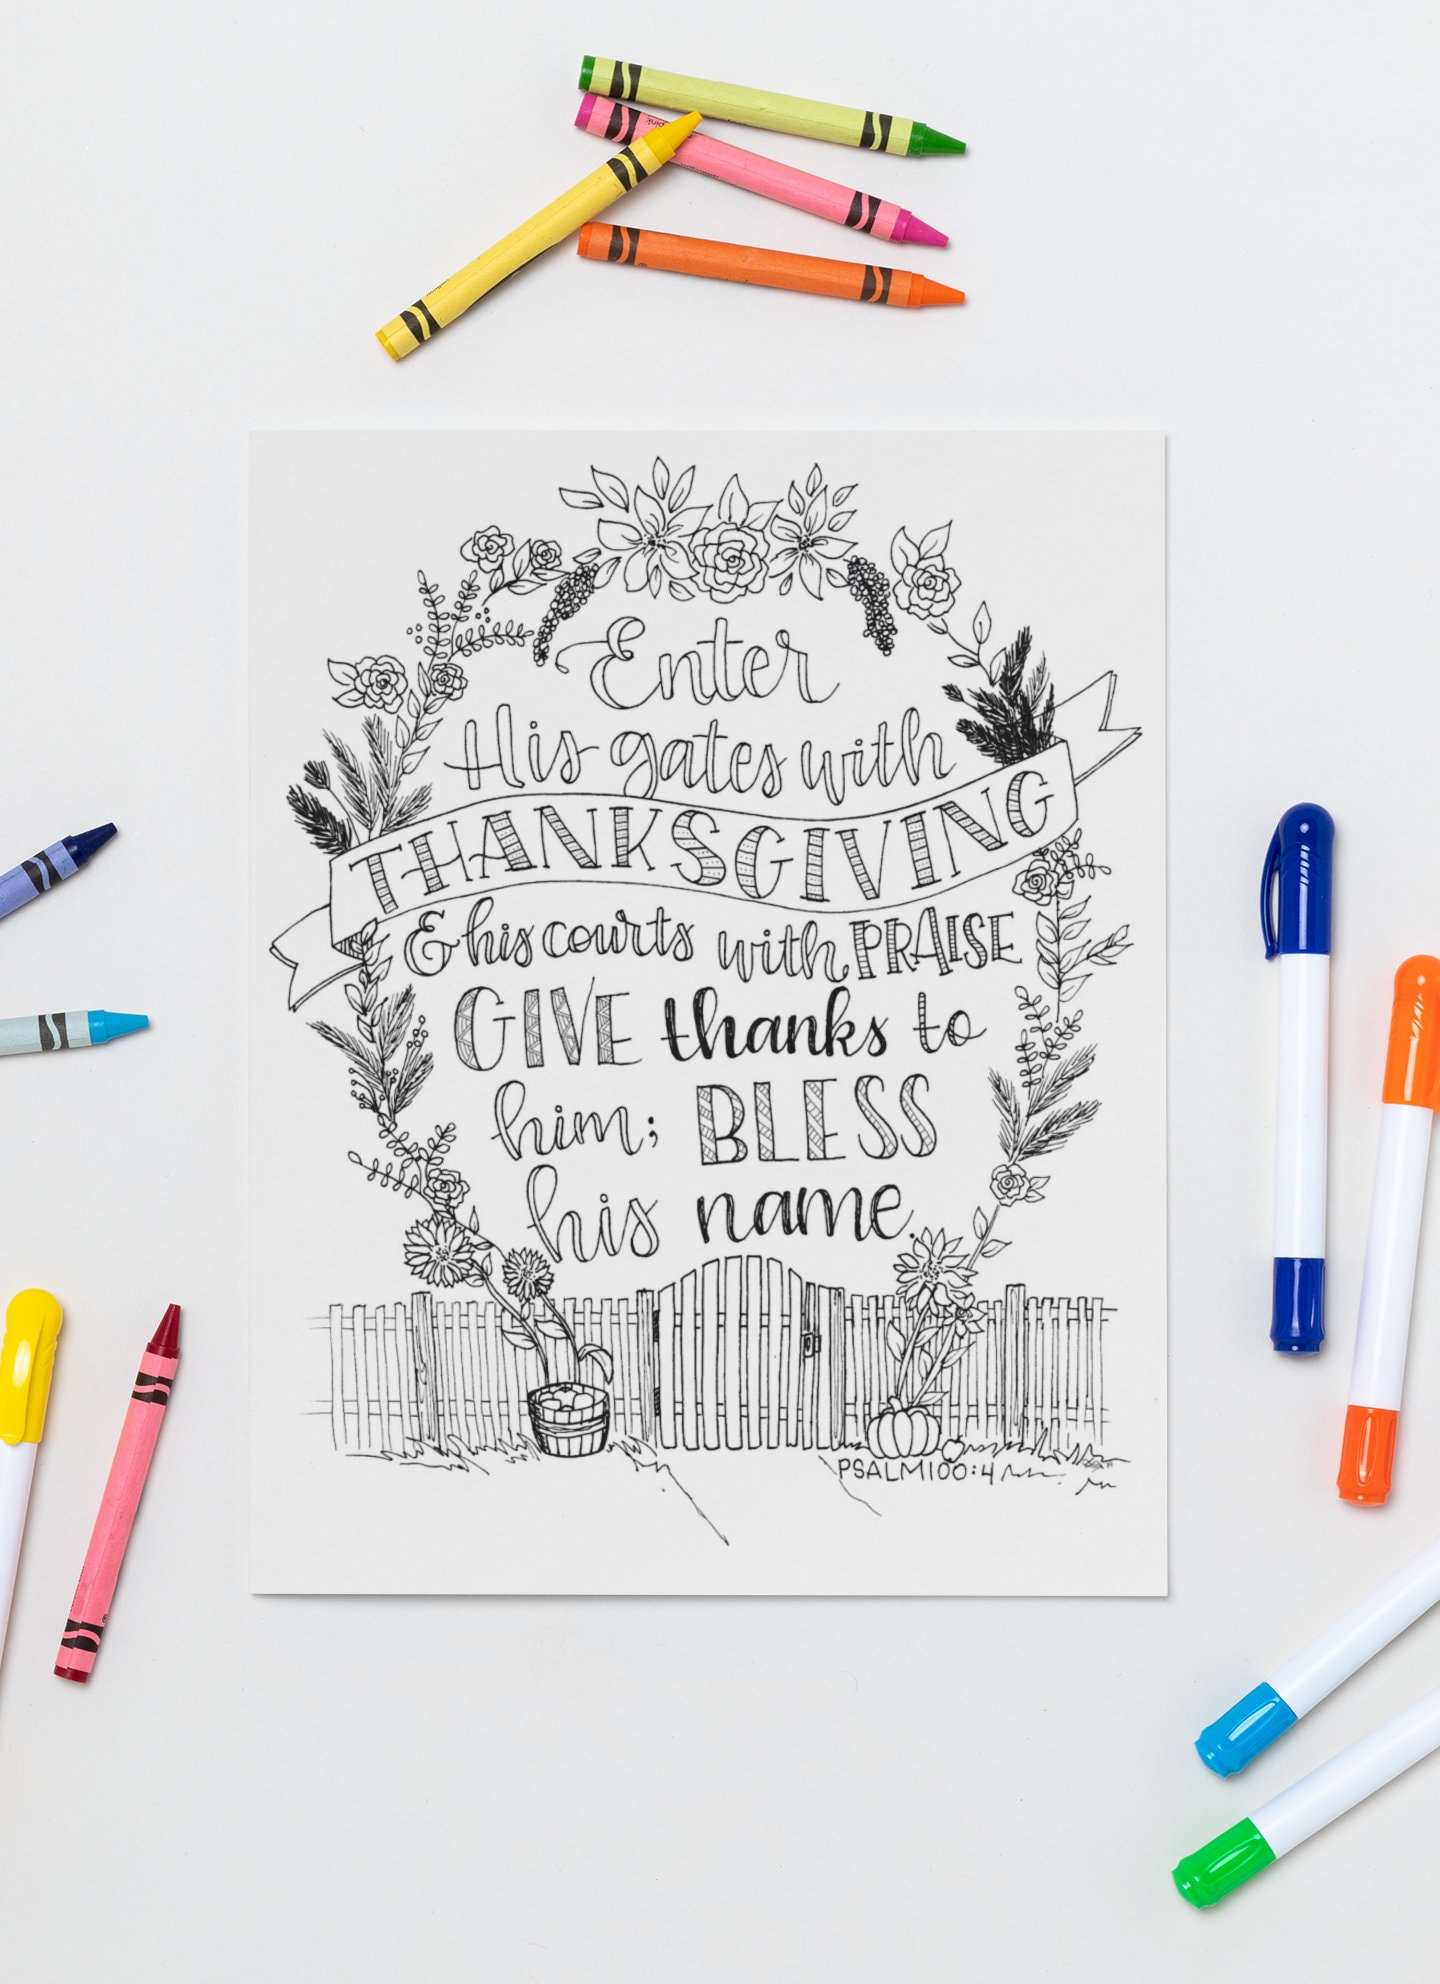 Enter
His gates with
THANKSGIVING
& his courts with PRAISE
GIVE thanks to
him; BLESS
his name.
PSALM 100:4
pink